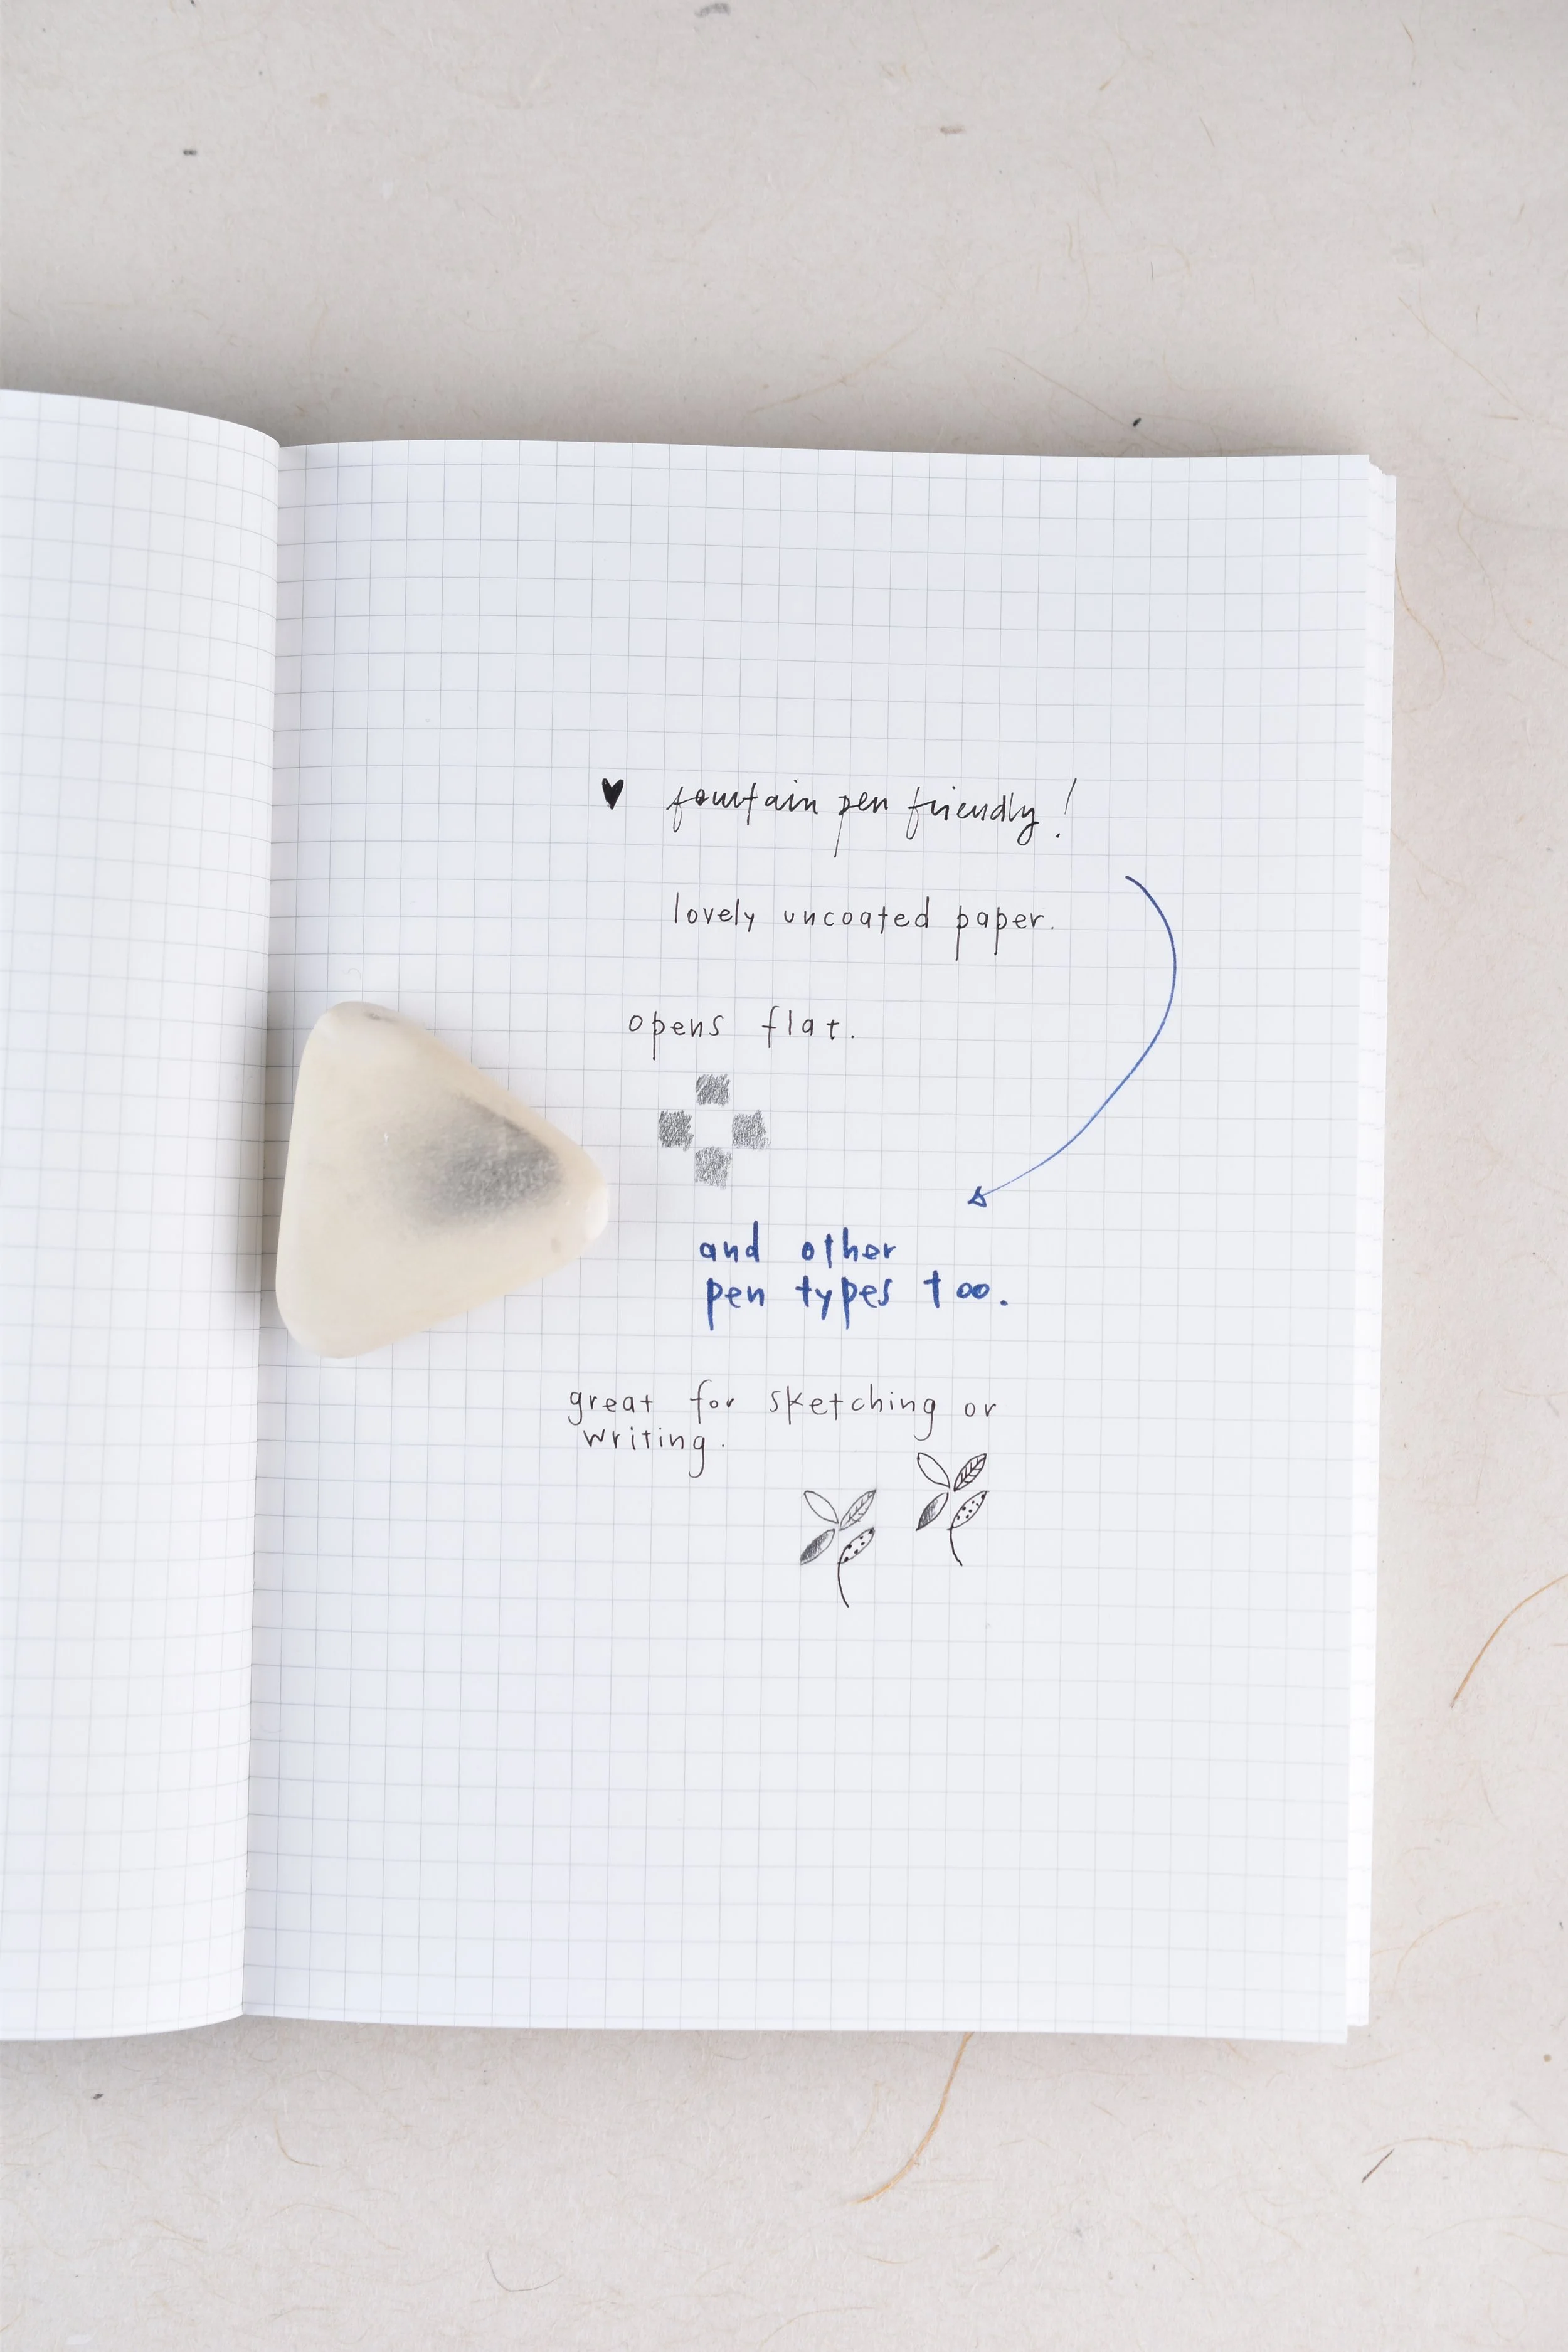 ♥ fountain pen friendly!
lovely uncoated paper.
opens flat.
and other
pen types too.
great for sketching or
writing.